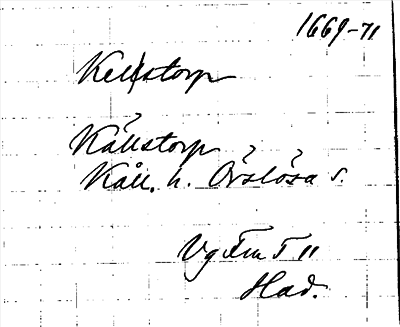 1669-71
Kellstorp
Källstorp
Kåll. h. Örslösa s.
Vg Fm T 11
Had.